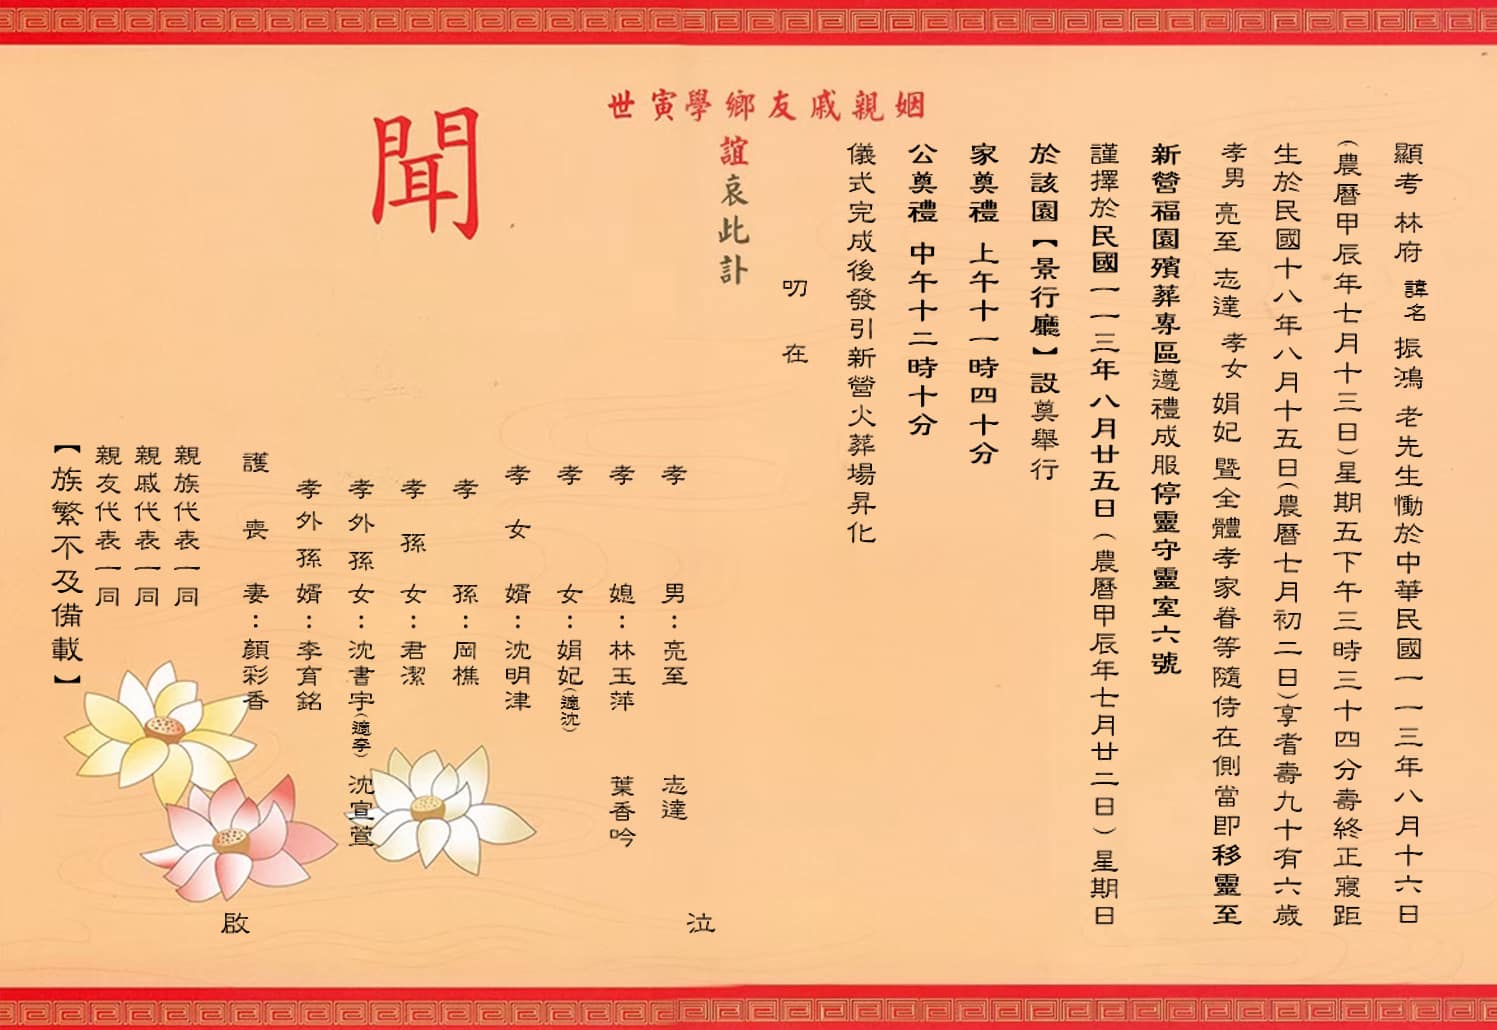 顯考 林府 諱名 振鴻 老先生慟於中華民國一一三年八月十六日
(農曆甲辰年七月十三日)星期五下午三時三十四分壽終正寢距
生於民國十八年八月十五日(農曆七月初二日)享耆壽九十有六歲
孝男 亮至 志達 孝女 娟妃 暨全體孝家眷等隨侍在側當即移靈至
新營福園殯葬專區遵禮成服停靈守靈室六號
謹擇於民國一一三年八月廿五日(農曆甲辰年七月廿二日)星期日
於該園【景行廳】設奠舉行
家奠禮 上午十一時四十分
公奠禮 中午十二時十分
儀式完成後發引新營火葬場昇化
叨在
姻親戚友鄉學寅世
誼哀此訃
聞
泣
孝男：亮至 志達
孝媳：林玉萍 葉香吟
孝女：娟妃(適沈)
孝女婿：沈明津
孝孫：岡樵
孝孫女：君潔
孝外孫女：沈書宇(適李) 沈宣萱
孝外孫婿：李育銘
護喪妻：顏彩香
啟
親族代表一同
親戚代表一同
親友代表一同
【族繁不及備載】